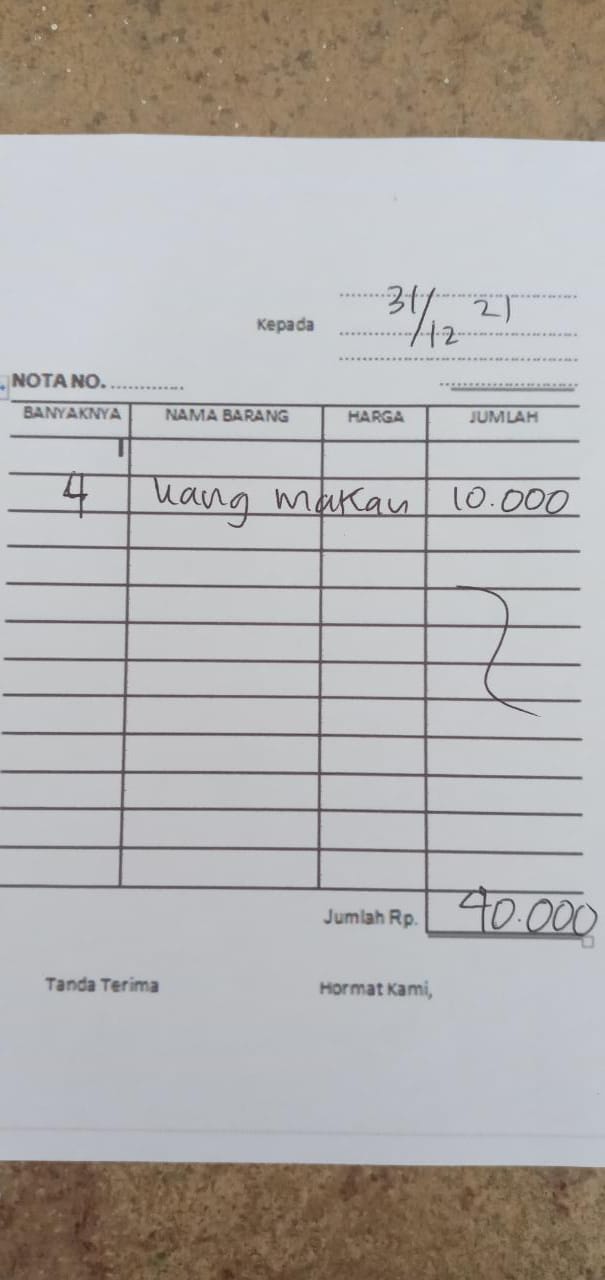 31/12 21
Kepada
NOTA NO. ............
BANYAKNYA NAMA BARANG HARGA JUMLAH
4 uang makan 10.000
Jumlah Rp. 40.000
Tanda Terima Hormat Kami,